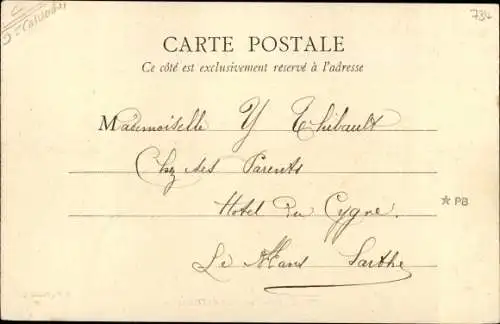 734
CARTE POSTALE
Ce côté est exclusivement reservé à l'adresse
Mademoiselle Y Thibault
Chez ses Parents
Hotel Du Cygne.
* PB
Le Mans Sarthe